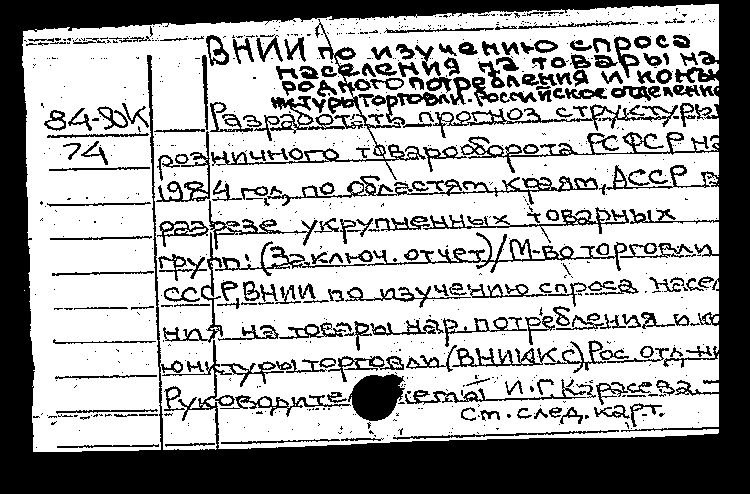 ВНИИ по изучению спроса
населения на товары на
родного потребления и конъю
нктуры торговли. Российское отделение
84-80К
74
Разработать прогноз структуры
розничного товарооборота РСФСР на
1984 год, по областям, краям, АССР в
разрезе укрупненных товарных
групп: (Заключ. отчет)/М-во торговли
СССР, ВНИИ по изучению спроса насел
ния на товары нар. потребления и ко
юнктуры торговли (ВНИИКС), Рос. отд-ни
Руководите темы И.Г. Карасева.–
См. след. карт.